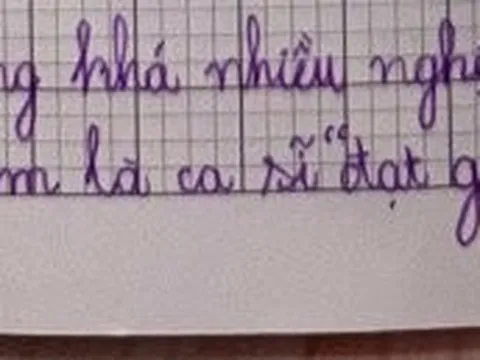 ng khá nhiều ngh
m là ca sĩ “đạt g